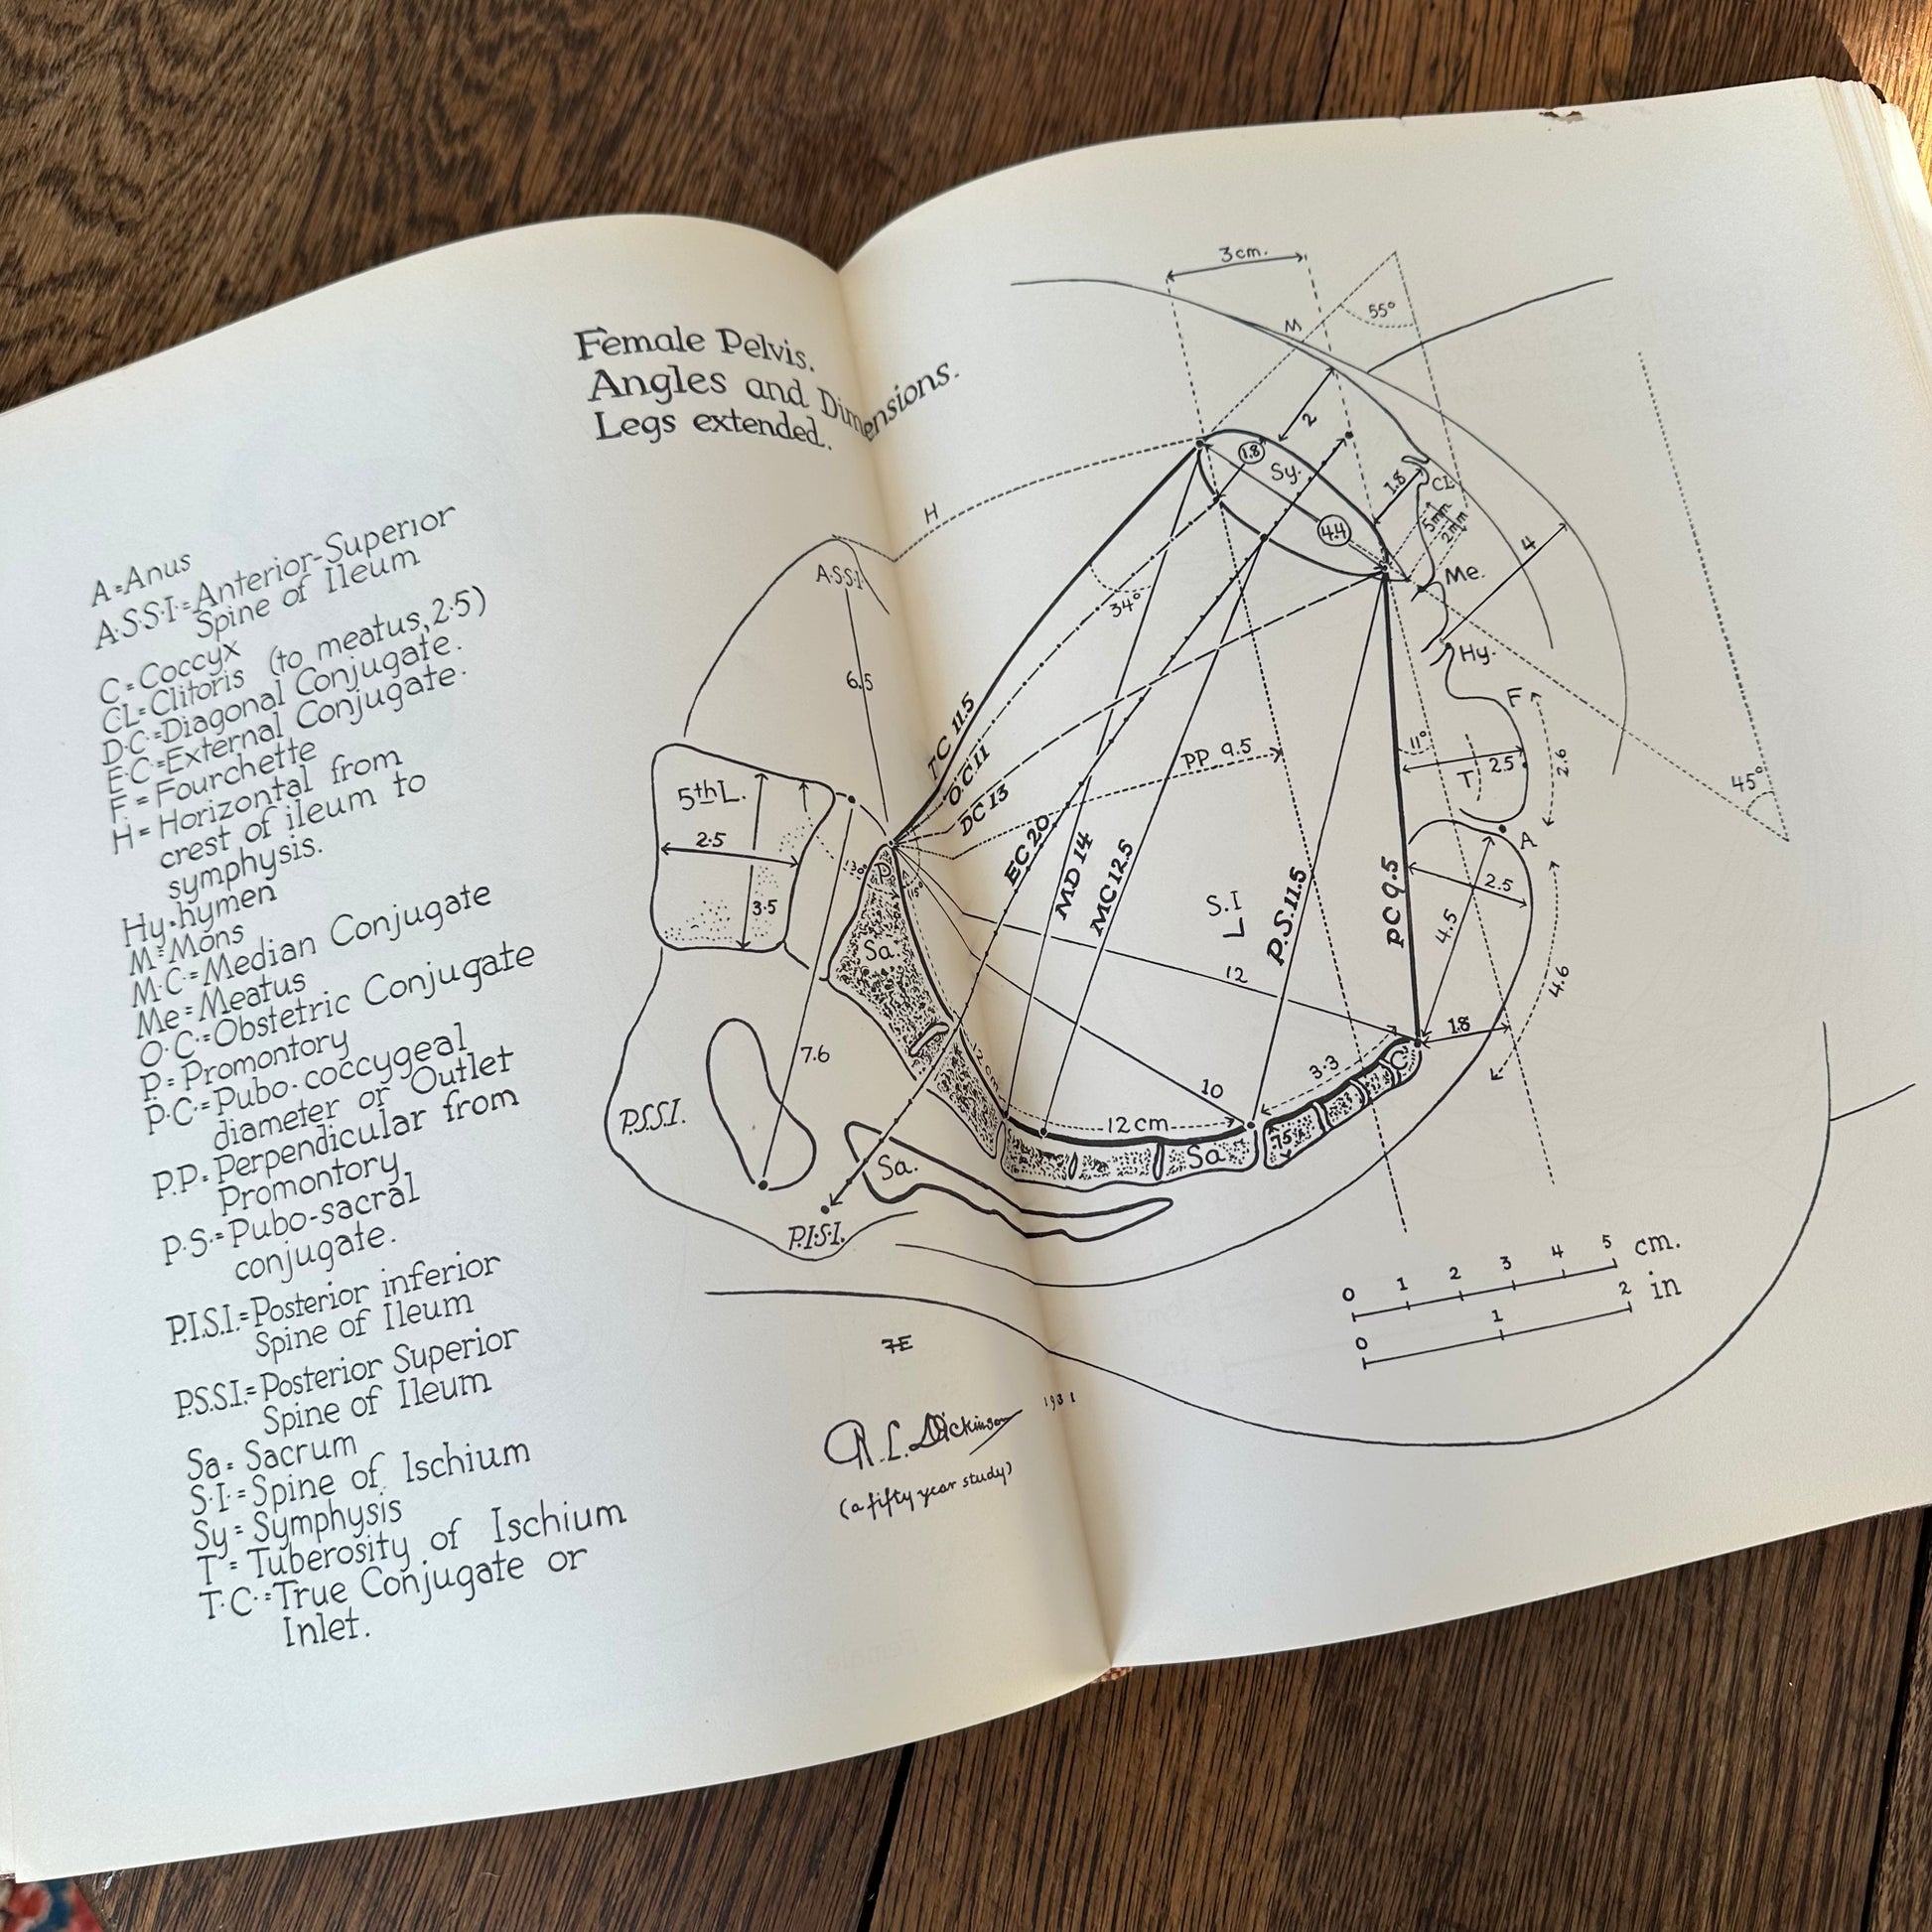 Female Pelvis.
Angles and Dimensions.
Legs extended.
A=Anus
A·S·S·I·=Anterior-Superior
Spine of Ileum
C=Coccyx
CL=Clitoris (to meatus, 2·5)
D·C·=Diagonal Conjugate.
E·C=External Conjugate.
F=Fourchette
H=Horizontal from
crest of ileum to
symphysis.
Hy=hymen
M=Mons
M·C·=Median Conjugate
Me=Meatus
O·C·=Obstetric Conjugate
P=Promontory
P·C·=Pubo-coccygeal
diameter or Outlet
P.P.=Perpendicular from
Promontory.
P·S·=Pubo-sacral
conjugate.
P.I.S.I.=Posterior inferior
Spine of Ileum
P.S.S.I.=Posterior Superior
Spine of Ileum
Sa=Sacrum
S·I·=Spine of Ischium
Sy=Symphysis
T=Tuberosity of Ischium
T·C·=True Conjugate or
Inlet.
3 cm.
55°
M
2
1.8
Sy.
4.4
1.8
CL
5mm
2mm
Me.
4
Hy.
F
H
A·S·S·I·
6.5
34°
TC 11.5
O.C.11
DC 13
PP 9.5
11°
T
2.5
2.6
45°
A
5th L.
2.5
3.5
P
115°
EC 20
MD 14
MC 12.5
S.I
P.S.11.5
PC 9.5
2.5
4.5
4.6
Sa.
12
1.8
12 cm
7.6
10
3.3
C
P.S.S.I.
12 cm
Sa
75°
Sa.
P.I.S.I.
0 1 2 3 4 5 cm.
0 1 2 in
R. L. Dickinson 1931
(a fifty year study)